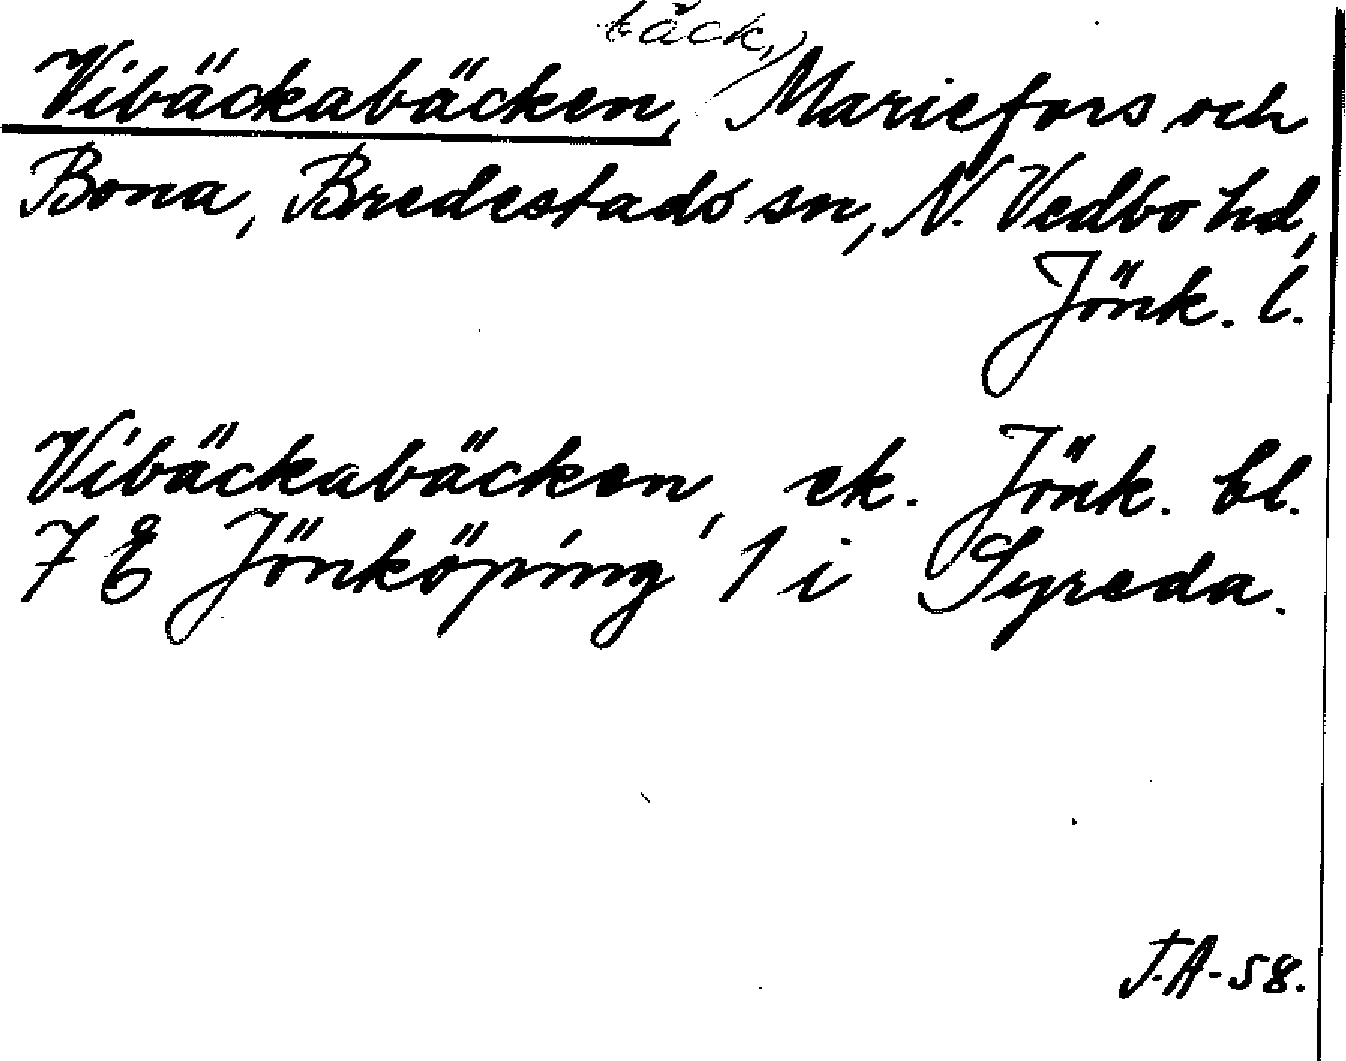 bäck,
Vibäckabäcken, Mariefors och
Bona, Bredestads sn, N. Vedbo hd,
Jönk. l.
Vibäckabäcken, ek. Jönk. bl.
7 E Jönköping 1 i Syreda.
J.A-58.